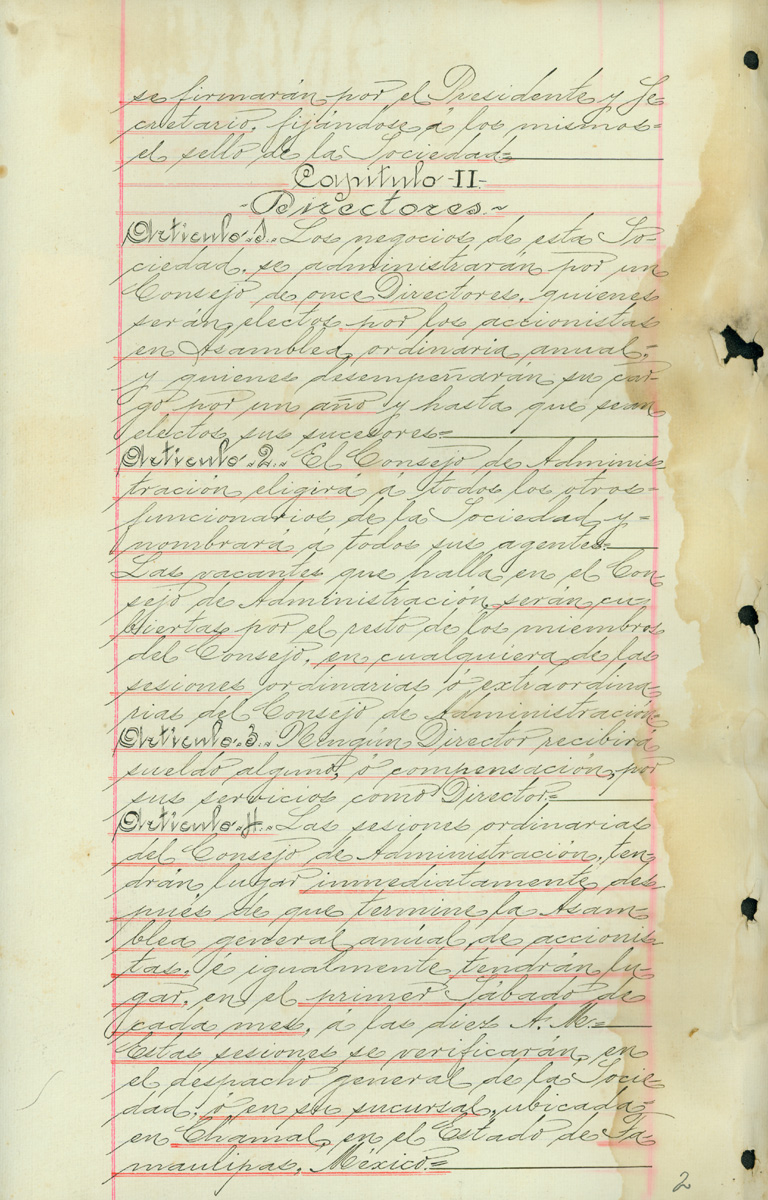 se firmarán por el Presidente y Se
cretario, fijándose á los mismos=
el sello de la Sociedad=
Capitulo -II-
-Directores-
Articulo 1. Los negocios de esta So-
ciedad, se administrarán por un
Consejo de once Directores, quienes
serán electos por los accionistas
en Asamblea ordinaria anual,
y quienes desempeñarán su car-
go por un año y hasta que sean
electos sus sucesores=
Articulo 2. El Consejo de Adminis
tración eligirá á todos los otros=
funcionarios de la Sociedad y=
nombrará á todos sus agentes.
Las vacantes que halla en el Con
sejo de Administración, serán cu
biertas por el resto de los miembros
del Consejo, en cualquiera de las
sesiones ordinarias ó extraordina
rias del Consejo de Administración
Articulo 3. Ningún Director recibirá
sueldo alguno, ó compensación, por
sus servicios como Director=
Articulo 4. Las sesiones ordinarias
del Consejo de Administración, ten
drán lugar inmediatamente des
pués de que termine la Asam
blea general anual, de accionis
tas, é igualmente tendrán lu-
gar, en el primer Sábado de
cada mes, á las diez A. M.=
Estas sesiones se verificarán, en
el despacho general de la Socie
dad, ó en su sucursal, ubicada
en Chamal, en el Estado de Ta-
maulipas, México.=
2